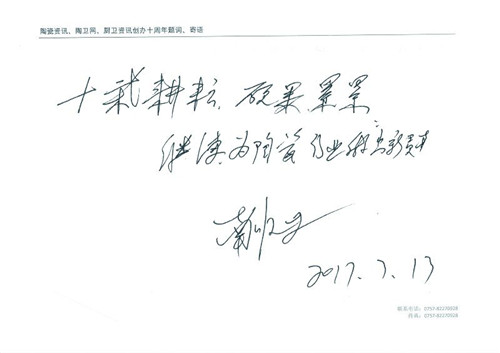 陶瓷资讯、陶卫网、厨卫资讯创办十周年题词、寄语
十载耕耘，硕果累累
继续为陶瓷行业
2017.7.13
联系电话：0757-82270028
传真：0757-82270028